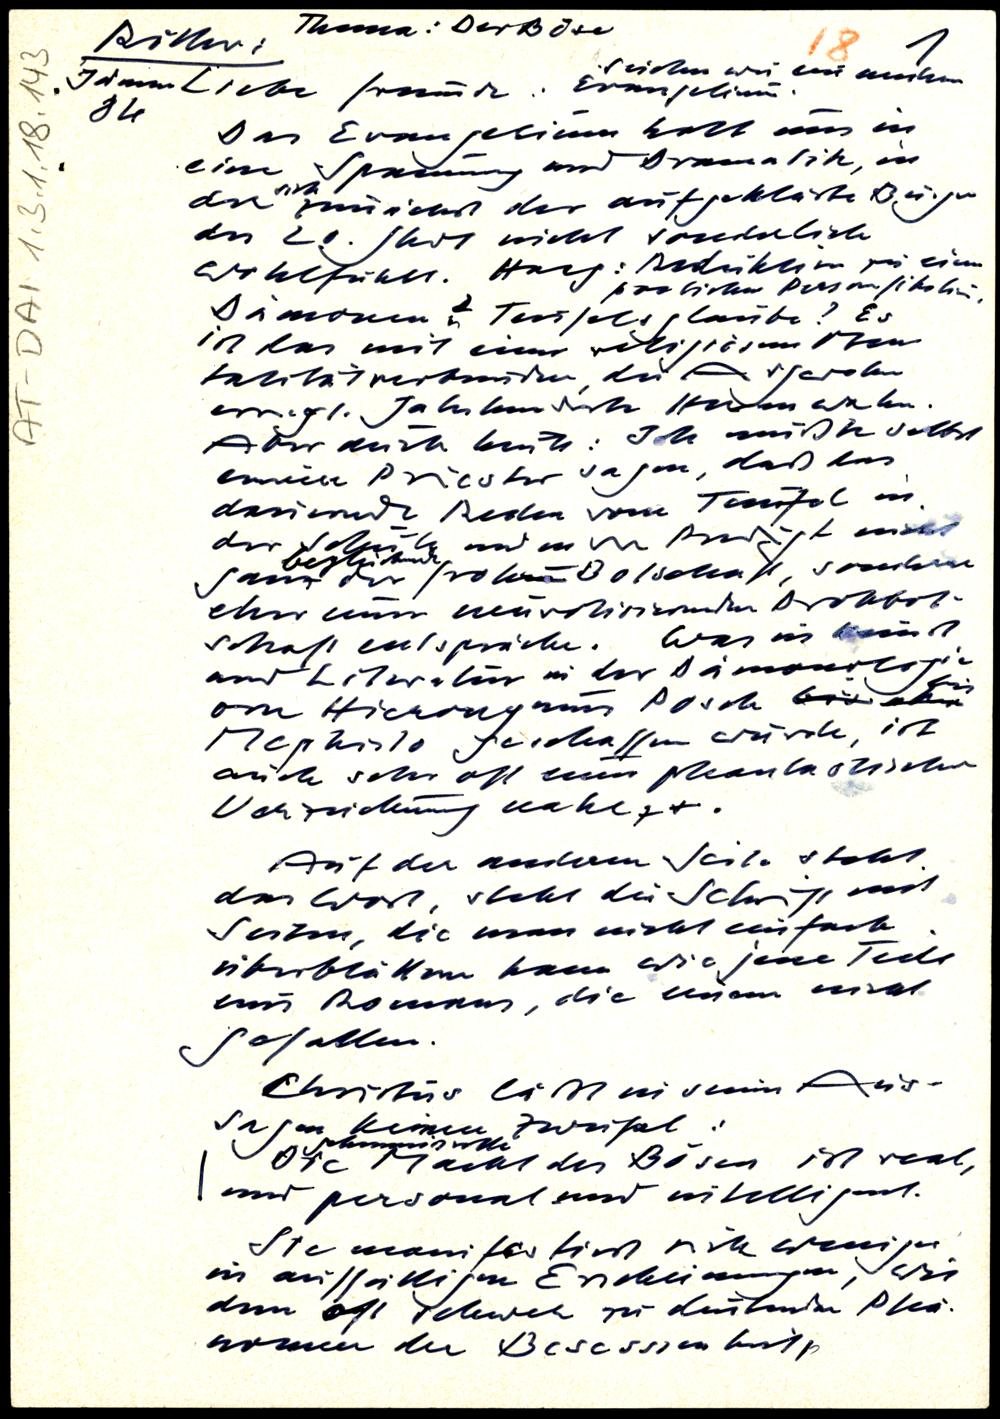 Thema: Der Böse
18 1
Ritter:
Jänner 84
Liebe Freunde.
Evangelium.
Das Evangelium holt uns in
eine Spannung und Dramatik, in
der sich zunächst der aufgeklärte Bürger
des 20. Jhdt nicht sonderlich
wohlfühlt. Haag: Reduktion zu einer
poetischen Personifikation.
Dämonen- u Teufelsglaube? Es
ist das mit einer religiösen Men
talität verbunden, die Argwohn
erregt. Jahrhunderte Hexenwahn.
Aber auch heute: Ich mußte selbst
einem Priester sagen, daß das
dauernde Reden vom Teufel in
der Schule und in der Predigt nicht
ganz der beglückenden frohen Botschaft, sondern
eher einer neurotisierenden Drohbot-
schaft entspräche. Was in Kunst
und Literatur in der Dämonologie
von Hieronymus Bosch bis
Mephisto geschaffen wurde, ist
auch sehr oft einer phantastischen
Verzeichnung nahe.
Auf der anderen Seite steht
das Wort, steht die Schrift mit
Seiten, die man nicht einfach
überblättern kann wie jene Teile
eines Romans, die einem nicht
gefallen.
Christus läßt in seinen Aus-
sagen keinen Zweifel:
Die geheimnisvolle Macht des Bösen ist real,
und personal und intelligent.
Sie manifestiert sich weniger
in auffälligen Erscheinungen, wie
dem oft schwer zu deutenden Phä-
nomen der Besessenheit,
AT-DAI 1.3.1.18.143